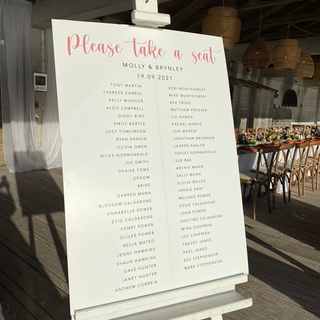 Please take a seat
MOLLY & BRYNLEY
19.09.2021
TONY MARTIN
THERESE CARROL
KELLY MONGER
ALDO CAMPBELL
DIGGY BIRD
EMILY BARTLE
JOEY TOMLINSON
RYAN SHAHIN
OLIVIA OWEN
MILES NORMANDALE
JOE SMITH
DENISE TOMS
GROOM
BRIDE
DARREN MANN
BLOSSOM CALDARONE
ANNABELLE POWER
EZIO CALDARONE
HENRY POWER
OLIVER POWER
BELLA MATEO
JENNY HAWKINS
SHAUN HAWKINS
DAVE HUNTER
JANET HUNTER
ANDREW CORREIA
DEBI MONTGOMERY
MIKE MONTGOMERY
BEA TRIGG
MATTHEW PROSSER
LIA HAMEN
RACHEL HARRIS
JON MOFFAT
JONATHAN BROWNING
LAUREN SADLER
HAYLEY NORMANDALE
SUE RAE
ARCHIE MANN
SALLY MANN
ELOISE BAILEY
JENNIE GRAY
MELANIE POWER
DEGS CALDARONE
JOHN POWER
SANTINO CALDARONE
MINA CHAPMAN
LEE CHAPMAN
TRACEY JONES
PAUL JONES
SUE STEPHENSON
MARK STEPHENSON